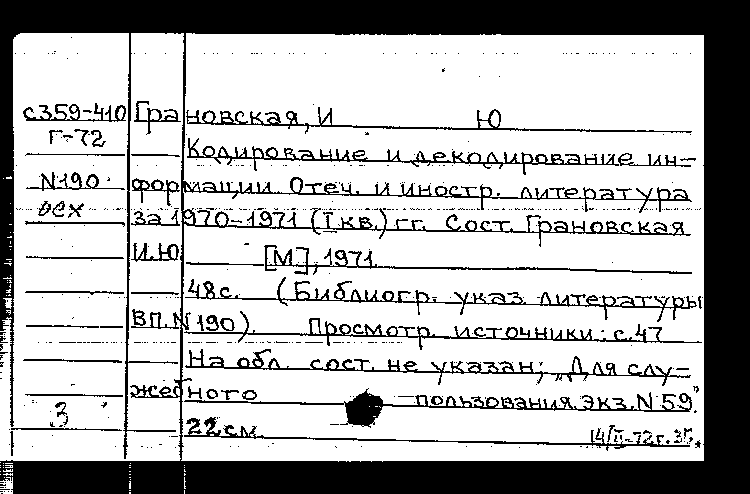 с359-410 Грановская, И Ю
Г-72
Кодирование и декодирование ин-
N190 формации. Отеч. и иностр. литература
осх за 1970-1971 (I кв.) гг. Сост. Грановская
И.Ю [М], 1971.
48с. (Библиогр. указ. литературы
ВП. N 190). Просмотр. источники: с. 47
На обл. сост. не указан; „Для слу-
жебного пользования. Экз. N 59"
3 22 см.
14/II-72г.